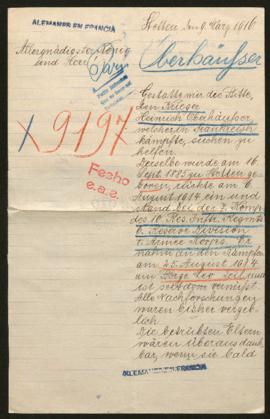 ALEMANES EN FRANCIA
Holten den 9. März 1916
Allergnädigster König
und Herr
Oberhäußer
Gestatte mir die Bitte,
den Krieger
Heinrich Oberhäußer
welcher in Frankreich
kämpfte, suchen zu
helfen.
X 9197
Derselbe wurde am 16
Sept. 1885 zu Holten ge
boren, rückte am 6.
Fecho
e.a.e.
August 1914 ein und
stand bei der 7. Komp.
des 10. Res. Inftr. Regmts
Reserve Division
Armee Korps. Er
nahm an den Kämpfen
am 25. August 1914
teil, und
ist seitdem vermißt.
Alle Nachforschungen
waren bisher vergeb
lich
Die betrübten Eltern
wären überaus dank
bar, wenn sie bald
ALEMANES EN FRANCIA